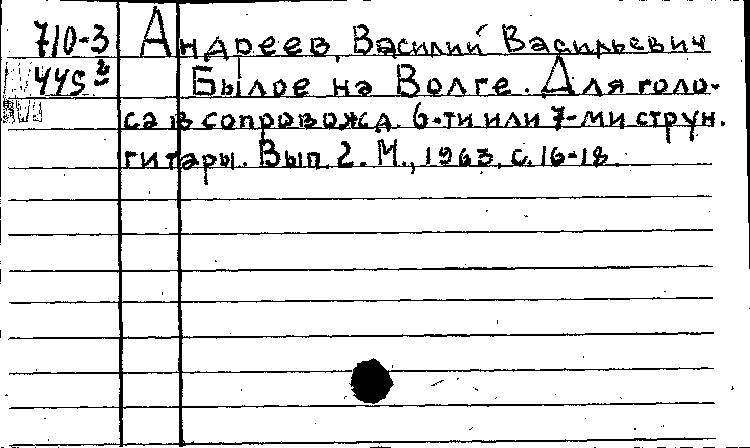 710-3 Андреев, Василий Васильевич
445 2 Былое на Волге. Для голо-
са в сопровожд. 6-ти или 7-ми струн.
гитары. Вып. 2. М., 1963, с. 16-18.